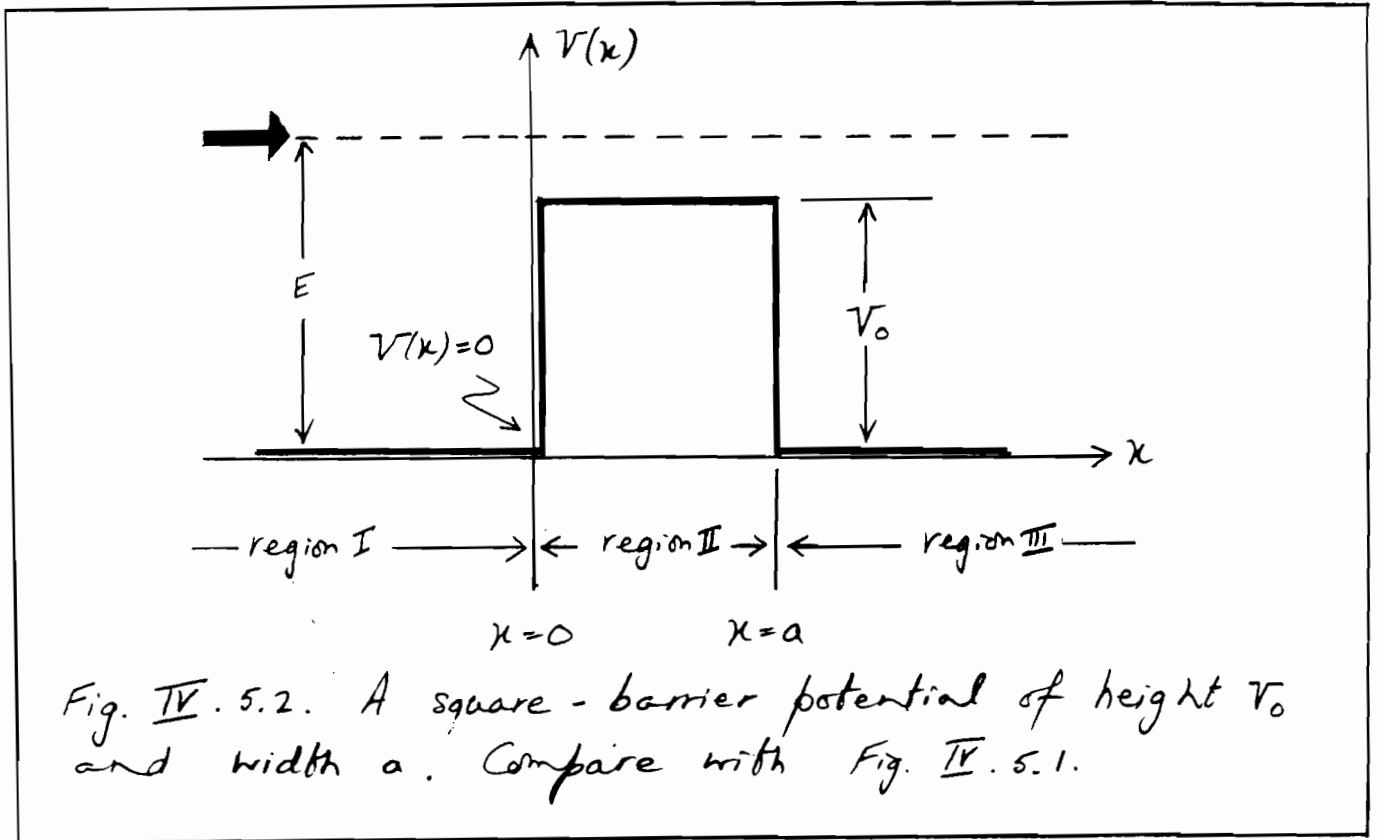 V(x)
E
V(x)=0
V₀
x
region I
region II
region III
x=0
x=a
Fig. IV. 5.2. A square-barrier potential of height V₀
and width a. Compare with Fig. IV. 5.1.